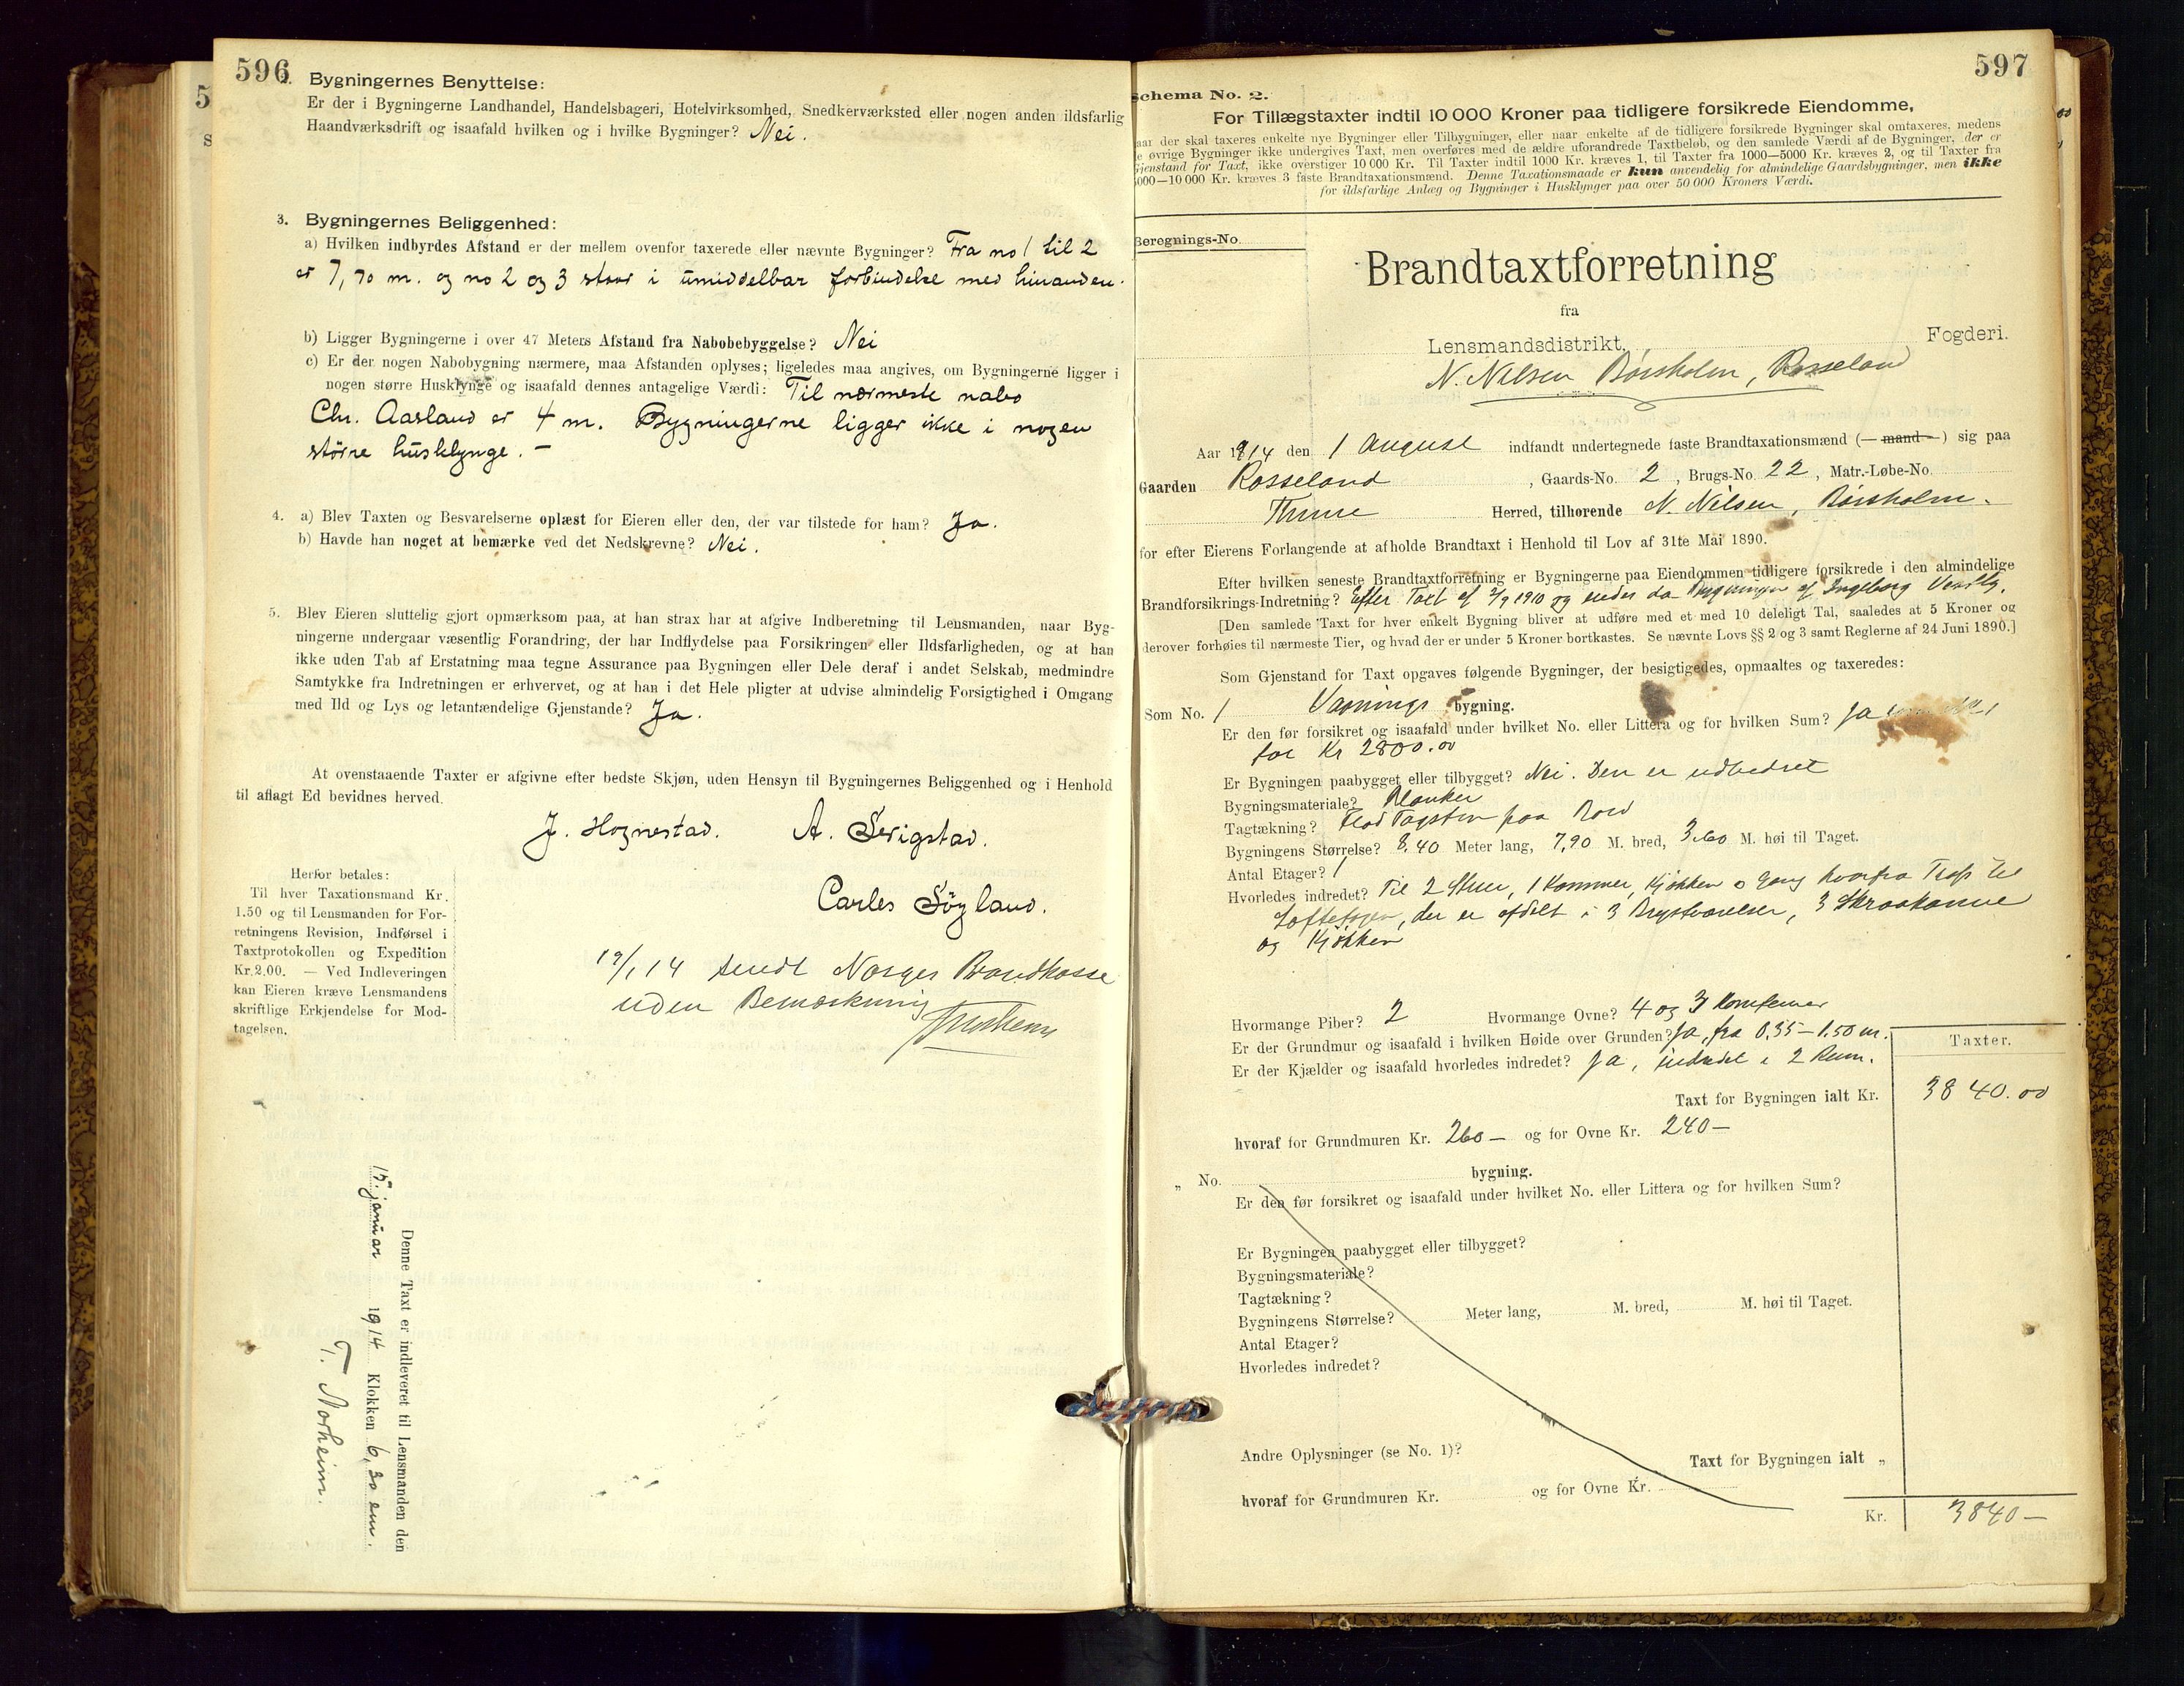 596
2. Bygningernes Benyttelse:
Er der i Bygningerne Landhandel, Handelsbageri, Hotelvirksomhed, Snedkerværksted eller nogen anden ildsfarlig
Haandværksdrift og isaafald hvilken og i hvilke Bygninger? Nei.
3. Bygningernes Beliggenhed:
a) Hvilken indbyrdes Afstand er der mellem ovenfor taxerede eller nævnte Bygninger? Fra no 1 til 2
er 7,70 m. og no 2 og 3 staar i umiddelbar forbindelse med hinanden.
b) Ligger Bygningerne i over 47 Meters Afstand fra Nabobebyggelse? Nei
c) Er der nogen Nabobygning nærmere, maa Afstanden oplyses; ligeledes maa angives, om Bygningerne ligger i
nogen større Husklynge og isaafald dennes antagelige Værdi: Til nærmeste nabo
Chr. Aasland er 4 m. Bygningerne ligger ikke i nogen
större husklynge. —
4. a) Blev Taxten og Besvarelserne oplæst for Eieren eller den, der var tilstede for ham? Ja.
b) Havde han noget at bemærke ved det Nedskrevne? Nei.
5. Blev Eieren sluttelig gjort opmærksom paa, at han strax har at afgive Indberetning til Lensmanden, naar Byg-
ningerne undergaar væsentlig Forandring, der har Indflydelse paa Forsikringen eller Ildsfarligheden, og at han
ikke uden Tab af Erstatning maa tegne Assurance paa Bygningen eller Dele deraf i andet Selskab, medmindre
Samtykke fra Indretningen er erhvervet, og at han i det Hele pligter at udvise almindelig Forsigtighed i Omgang
med Ild og Lys og letantændelige Gjenstande? Ja.
At ovenstaaende Taxter er afgivne efter bedste Skjøn, uden Hensyn til Bygningernes Beliggenhed og i Henhold
til aflagt Ed bevidnes herved.
J. Hognestad. A. Serigstad.
Carles Söyland.
Herfor betales:
Til hver Taxationsmand Kr.
1.50 og til Lensmanden for For-
retningens Revision, Indførsel i
Taxtprotokollen og Expedition
Kr. 2.00. — Ved Indleveringen
kan Eieren kræve Lensmandens
skriftlige Erkjendelse for Mod-
tagelsen.
19/1 14 sendt Norges Brandkasse
uden Bemærkning
Denne Taxt er indleveret til Lensmanden den
15. januar 1914 Klokken 6,30 em.
T. Norheim.
597
Schema No. 2.
For Tillægstaxter indtil 10 000 Kroner paa tidligere forsikrede Eiendomme,
aar der skal taxeres enkelte nye Bygninger eller Tilbygninger, eller naar enkelte af de tidligere forsikrede Bygninger skal omtaxeres, medens
e øvrige Bygninger ikke undergives Taxt, men overføres med de ældre uforandrede Taxtbeløb, og den samlede Værdi af de Bygninger, der er
Gjenstand for Taxt, ikke overstiger 10 000 Kr. Til Taxter indtil 1000 Kr. kræves 1, til Taxter fra 1000—5000 Kr. kræves 2, og til Taxter fra
5000—10 000 Kr. kræves 3 faste Brandtaxationsmænd. Denne Taxationsmaade er kun anvendelig for almindelige Gaardsbygninger, men ikke
for ildsfarlige Anlæg og Bygninger i Husklynger paa over 50 000 Kroners Værdi.
Beregnings-No.
Brandtaxtforretning
fra
Lensmandsdistrikt, Fogderi.
N. Nilsen Børsholm, Rosseland
Aar 1914 den 1 August indfandt undertegnede faste Brandtaxationsmænd (— mand —) sig paa
Gaarden Rosseland, Gaards-No. 2, Brugs-No. 22, Matr.-Løbe-No.
Thime Herred, tilhørende N. Nilsen, Børsholm.
for efter Eierens Forlangende at afholde Brandtaxt i Henhold til Lov af 31te Mai 1890.
Efter hvilken seneste Brandtaxtforretning er Bygningerne paa Eiendommen tidligere forsikrede i den almindelige
Brandforsikrings-Indretning? Efter Taxt af 2/9 1910 og Bygningen af Ingeborg
[Den samlede Taxt for hver enkelt Bygning bliver at udføre med et med 10 deleligt Tal, saaledes at 5 Kroner og
derover forhøies til nærmeste Tier, og hvad der er under 5 Kroner bortkastes. Se nævnte Lovs §§ 2 og 3 samt Reglerne af 24 Juni 1890.]
Som Gjenstand for Taxt opgaves følgende Bygninger, der besigtigedes, opmaaltes og taxeredes:
Som No. 1 Vaanings bygning.
Er den før forsikret og isaafald under hvilket No. eller Littera og for hvilken Sum? Ja
for Kr 2800.00
Er Bygningen paabygget eller tilbygget? Nei. Den er udbedret
Bygningsmateriale? Planker
Tagtækning? Flad Tagsten paa Bord
Bygningens Størrelse? 8,40 Meter lang, 7,90 M. bred, 3,60 M. høi til Taget.
Antal Etager? 1
Hvorledes indredet? Til 2 Stuer, 1 Kammer, Kjøkken o Gang hvorfra Trap til
Loftetagen, der er afdelt i 3 Brystværelser, 3 Skraakamre
og Kjøkken
Hvormange Piber? 2 Hvormange Ovne? 4 og 3 Komfurer
Er der Grundmur og isaafald i hvilken Høide over Grunden? Ja, fra 0,35—1.50 m.
Er der Kjælder og isaafald hvorledes indredet? Ja, indredet i 2 Rum.
Taxter.
Taxt for Bygningen ialt Kr. 3840.00
hvoraf for Grundmuren Kr. 260— og for Ovne Kr. 240—
„ No. bygning.
Er den før forsikret og isaafald under hvilket No. eller Littera og for hvilken Sum?
Er Bygningen paabygget eller tilbygget?
Bygningsmateriale?
Tagtækning?
Bygningens Størrelse? Meter lang, M. bred, M. høi til Taget.
Antal Etager?
Hvorledes indredet?
Andre Oplysninger (se No. 1)?
Taxt for Bygningen ialt „
hvoraf for Grundmuren Kr. og for Ovne Kr.
Kr. 3840—